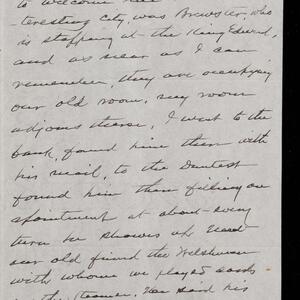 to welcome
teresting city, was Brewster, who
is stopping at the King Edward,
and as near as I can
remember, they are occupying
our old room, my room
adjoins theirs. I went to the
bank, found him there with
his mail, to the Dentist
found him there filling an
apointment at about every
turn he shows up.
our old friend the Welshman
with whom we played cards
on the steamer. He said his